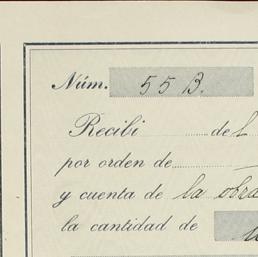 Núm. 55 B.
Recibí de L
por orden de
y cuenta de la obra
la cantidad de